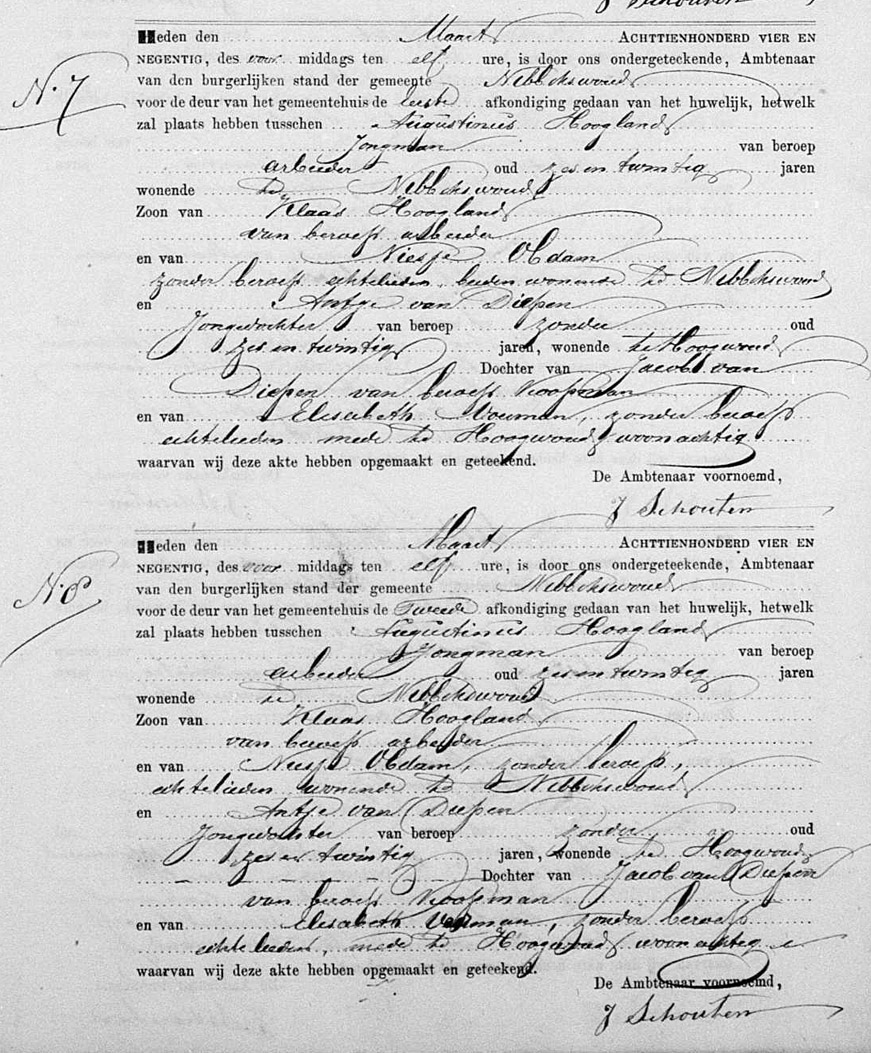 J Schouten
Heden den Maart ACHTTIENHONDERD VIER EN
N. 7
NEGENTIG, des voor middags ten elf ure, is door ons ondergeteekende, Ambtenaar
van den burgerlijken stand der gemeente Nibbikswoud
voor de deur van het gemeentehuis de eerste afkondiging gedaan van het huwelijk, hetwelk
zal plaats hebben tusschen Augustinus Hoogland
Jongman van beroep
arbeider oud zes en twintig jaren
wonende te Nibbikswoud
Zoon van Klaas Hoogland
van beroep arbeider
en van Niesje Obdam
zonder beroep echtelieden beiden wonende te Nibbikswoud
en Antje van Diepen
Jongedochter van beroep zonder oud
zes en twintig jaren, wonende te Hoogwoud
Dochter van Jacob van
Diepen van beroep Koopman
en van Elisabeth Mouman, zonder beroep
echtelieden mede te Hoogwoud woonachtig
waarvan wij deze akte hebben opgemaakt en geteekend.
De Ambtenaar voornoemd,
J Schouten
Heden den Maart ACHTTIENHONDERD VIER EN
N. 8
NEGENTIG, des voor middags ten elf ure, is door ons ondergeteekende, Ambtenaar
van den burgerlijken stand der gemeente Nibbikswoud
voor de deur van het gemeentehuis de Tweede afkondiging gedaan van het huwelijk, hetwelk
zal plaats hebben tusschen Augustinus Hoogland
Jongman van beroep
arbeider oud zes en twintig jaren
wonende te Nibbikswoud
Zoon van Klaas Hoogland
van beroep arbeider
en van Niesje Obdam, zonder beroep,
echtelieden wonende te Nibbikswoud
en Antje van Diepen
Jongedochter van beroep zonder oud
zes en twintig jaren, wonende te Hoogwoud
Dochter van Jacob van Diepen
van beroep Koopman
en van Elisabeth zonder beroep
echtelieden, mede te Hoogwoud woonachtig
waarvan wij deze akte hebben opgemaakt en geteekend.
De Ambtenaar voornoemd,
J Schouten